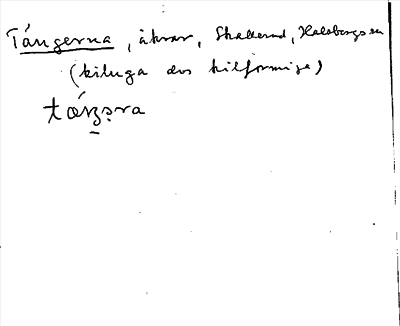 Tångerna, åkrar, Skallerud, Halsbergs sn
(kiluga dvs kilformiga)